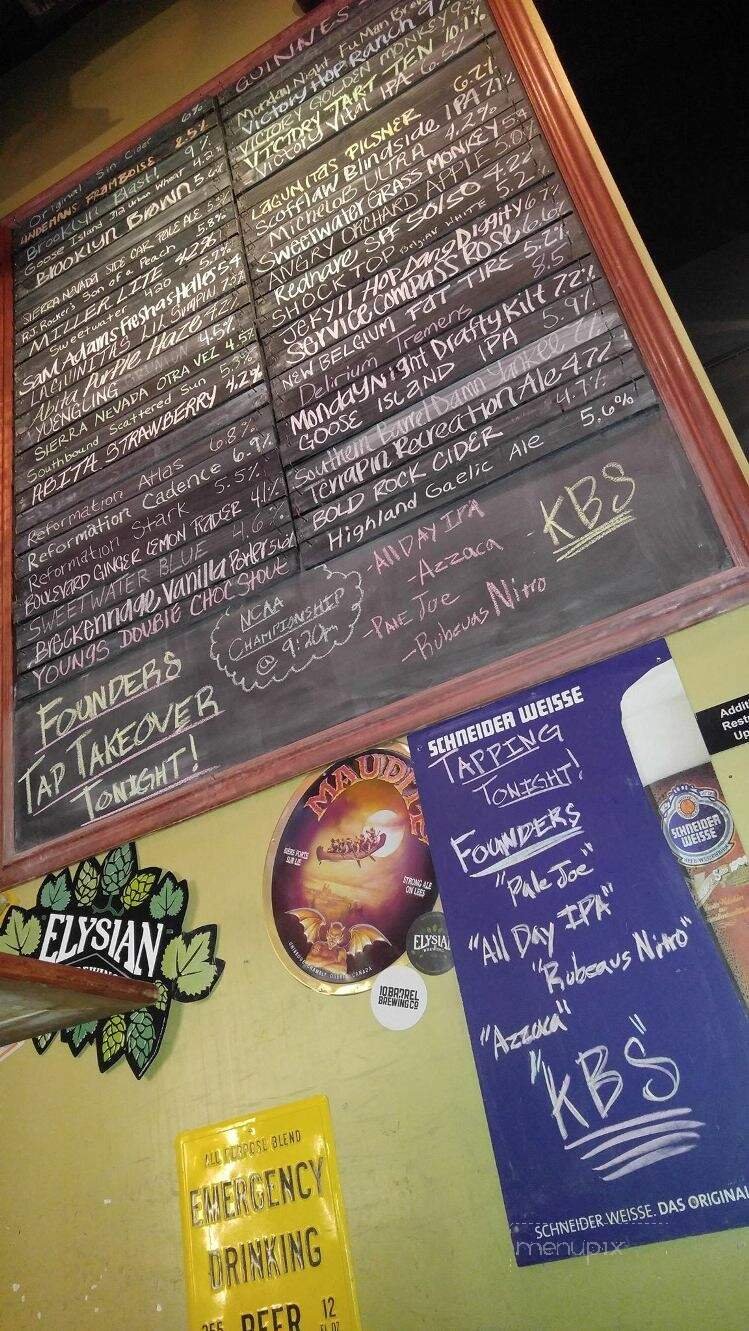 Original Sin Cider 6%
LINDEMANS FRAMBOISE 2.5%
Brooklyn Blast! 9%
Goose Island 312 Urban Wheat 4.2%
BROOKLYN Brown 5.6%
SIERRA NEVADA SIDE CAR PALE ALE 5.3%
RJ Rocker's Son of a Peach 5.8%
MILLER LITE 4.2%
Sweetwater 420 5.7%
Sam Adams Fresh as Helles 5.4
LAGUNITAS LIL SUMPIN
Abita Purple Haze 4.2%
YUENGLING 4.5%
SIERRA NEVADA OTRA VEZ 4.5%
Southbound Scattered Sun 5.3%
ABITA STRAWBERRY 4.2%
Reformation Atlas 6.8%
Reformation Cadence 6.9%
Reformation Stark 5.5%
BOULEVARD GINGER LEMON RADLER 4.1%
SWEETWATER BLUE 4.6%
Breckenridge Vanilla Porter
YOUNGS DOUBLE CHOC STOUT
GUINNESS
Monday Night Fu Man Brew
Victory Hop Ranch 9%
VICTORY GOLDEN MONKEY 9.5%
VICTORY TART TEN 10.1%
Victory Vital IPA 6.5%
LAGUNITAS PILSNER 6.2%
Scofflaw Blindside IPA 7.1%
Michelob ULTRA 4.2%
Sweetwater GRASS MONKEY 5.4
ANGRY ORCHARD APPLE 5.0%
Redhare SPF 50/50 4.2%
SHOCK TOP BELGIAN WHITE 5.2%
JEKYLL Hop Dang Diggity 6.7%
Service Compass Rose 6.6%
NEW BELGIUM FAT TIRE 5.2%
Delirium Tremens 8.5
Monday Night Drafty Kilt 7.2%
GOOSE ISLAND IPA 5.9%
Southern Barrel Damn Yankee 7%
Terrapin Recreation Ale 4.7%
BOLD ROCK CIDER 4.7%
Highland Gaelic Ale 5.6%
FOUNDERS
TAP TAKEOVER
TONIGHT!
NCAA
CHAMPIONSHIP
@ 9:20pm
- All DAY IPA
- Azzaca
- PALE Joe
- Rubeaus Nitro
- KBS
SCHNEIDER WEISSE
TAPPING
TONIGHT!
FOUNDERS
"Pale Joe"
"All Day IPA"
"Rubeaus Nitro"
"Azzaca"
"KBS"
SCHNEIDER WEISSE. DAS ORIGINAL
SCHNEIDER
WEISSE
Addit
Rest
Up
MAUDITE
BIÈRE FORTE
SUR LIE
STRONG ALE
ON LEES
ELYSIAN
ELYSIAN
10 BARREL
BREWING CO
ALL PURPOSE BLEND
EMERGENCY
DRINKING
355 BEER 12
FL OZ
menupix